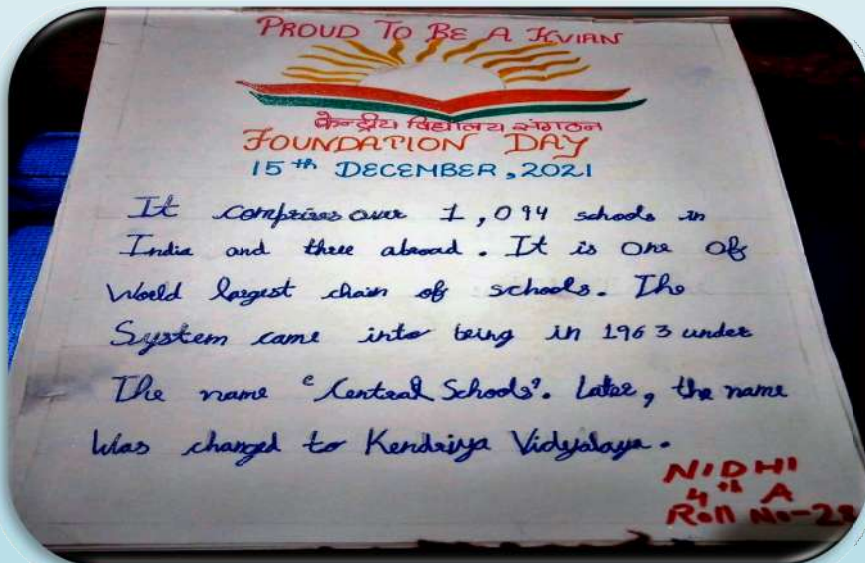 PROUD TO BE A KVIAN
केन्द्रीय विद्यालय संगठन
FOUNDATION DAY
15th DECEMBER, 2021
It comprises over 1,094 schools in
India and three abroad. It is One Of
World largest chain of schools. The
System came into being in 1963 under
The name "Central Schools". Later, the name
Was changed to Kendriya Vidyalaya.
NIDHI
4th A
Roll No-28